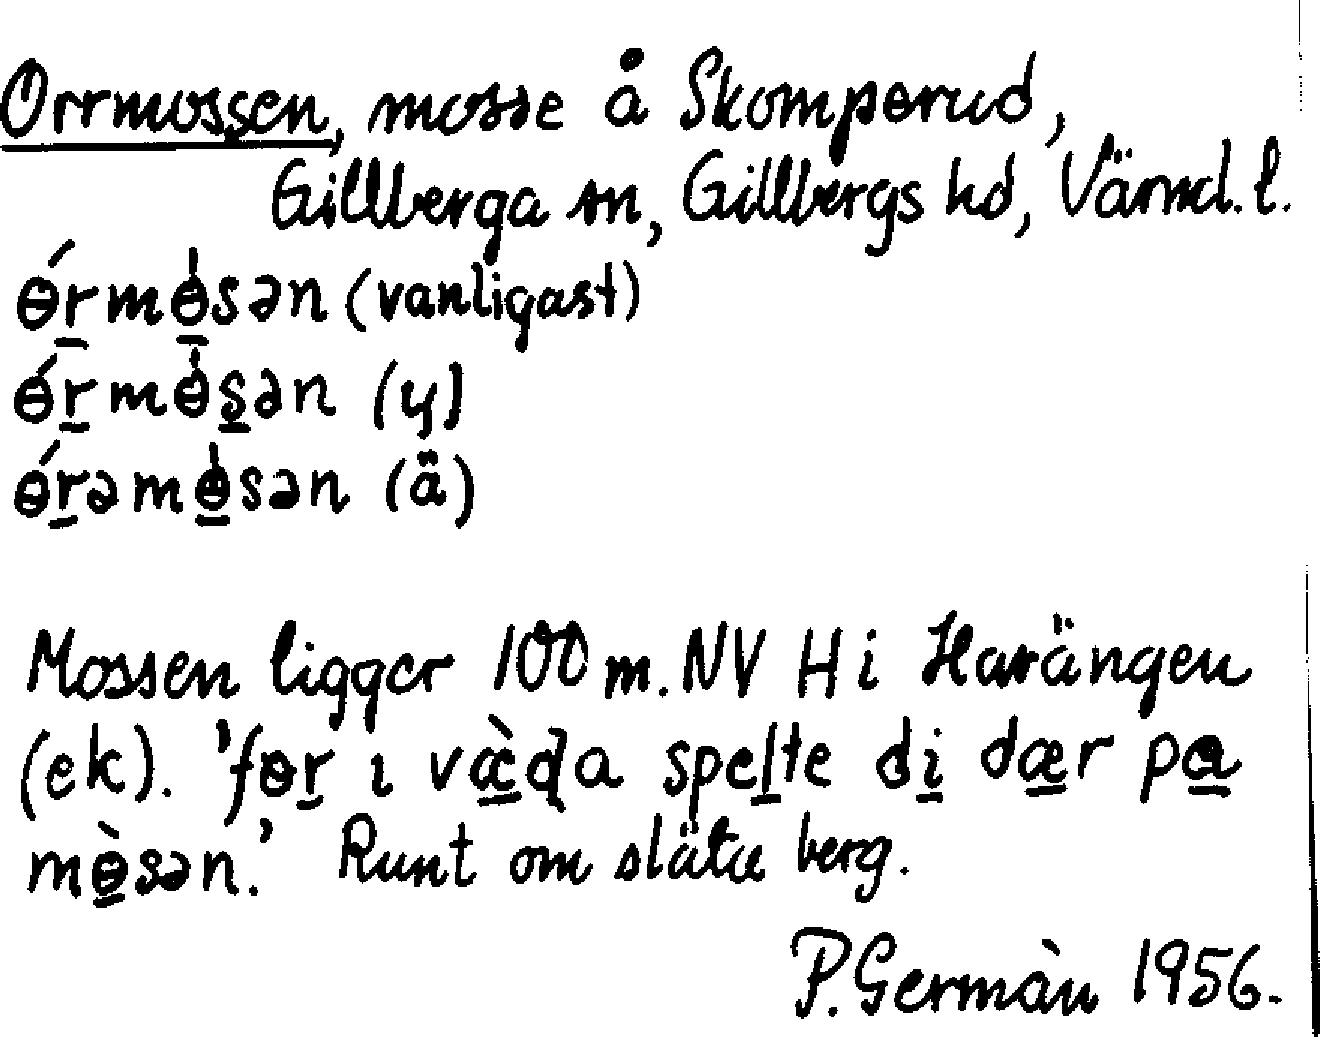 Orrmossen, mosse å Skomperud,
Gillberga sn, Gillbergs hd, Värml. l.
ɵ́r̲mɵ̲̍sən (vanligast)
ɵ́r̲mɵ̍s̲ən (y)
ɵ́r̲əmɵ̲̍sən (ä)
Mossen ligger 100 m. NV H i Harängen
(ek). 'fɵr̲ ı væ̲̀ɖa spel̲te di̲ dæ̲r pa̲
mɵ̲̀sən.' Runt om släta berg.
P. Germàn 1956.